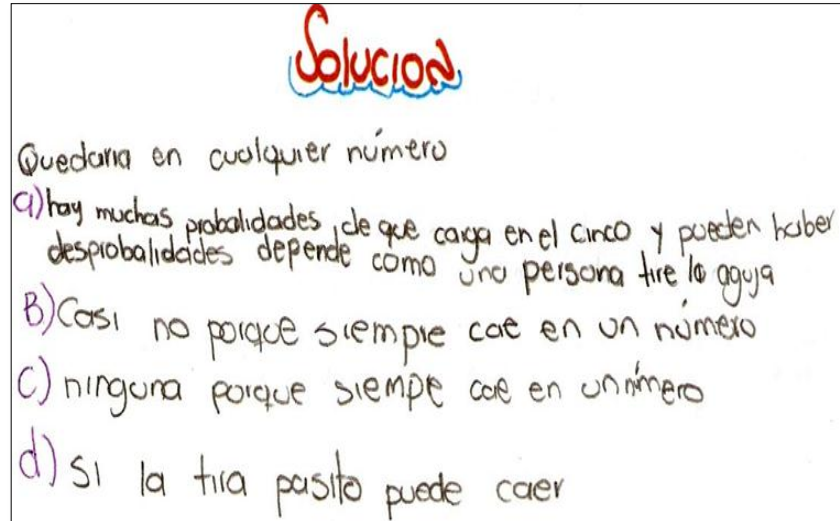 Solucion
Quedaria en cualquier número
a) hay muchas probalidades de que caiga en el cinco y pueden haber
desprobalidades depende como una persona tire la aguja
B) Casi no porque siempre cae en un número
C) ninguna porque siempe cae en un número
d) si la tira pasito puede caer